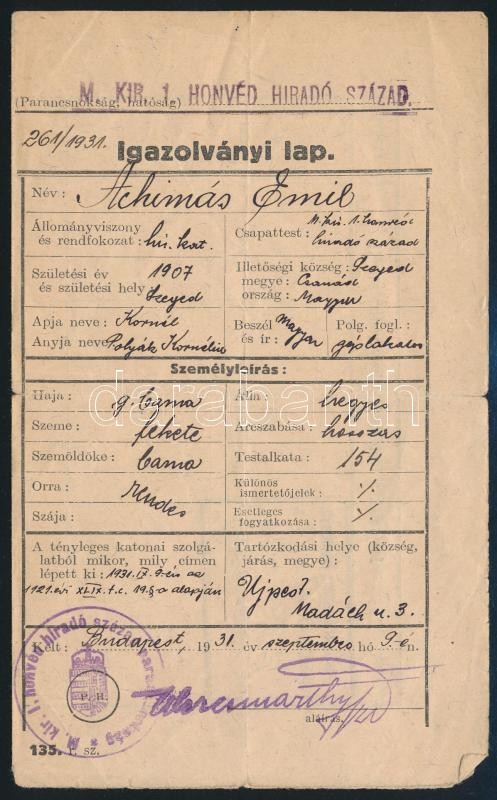 M. KIR. 1. HONVÉD HIRADÓ SZÁZAD.
(Parancsnokság, hatóság)
261/1931.
Igazolványi lap.
Név: Achimás Emil
Állományviszony
és rendfokozat:
Csapattest: M. kir. 1. honvéd
hiradó század
Születési év 1907
és születési hely: Szeged
Illetőségi község: Szeged
megye: Csanád
ország: Magyar
Apja neve: Kornél
Anyja neve: Polyák Kornélia
Beszél
és ír: Magyar
Polg. fogl.: géplakatos
Személyleírás:
Haja: g. barna
Szeme: fekete
Szemöldöke: barna
Orra: Rendes
Szája:
Álla: hegyes
Arcszabása: hosszas
Testalkata: 154
Különös
ismertetőjelek: ./.
Esetleges
fogyatkozása: ./.
A tényleges katonai szolgá-
latból mikor, mily címen
lépett ki: 1931. IX. 9-én az
1921. évi XLIX. t.c. 19.§-a alapján
Tartózkodási helye (község,
járás, megye):
Ujpest.
Madách u. 3.
Kelt: Budapest, 1931 év szeptember hó 9-én.
M. kir. 1. honvéd hiradó század parancsnokság
P. H.
aláírás.
135. r. sz.
darabanth